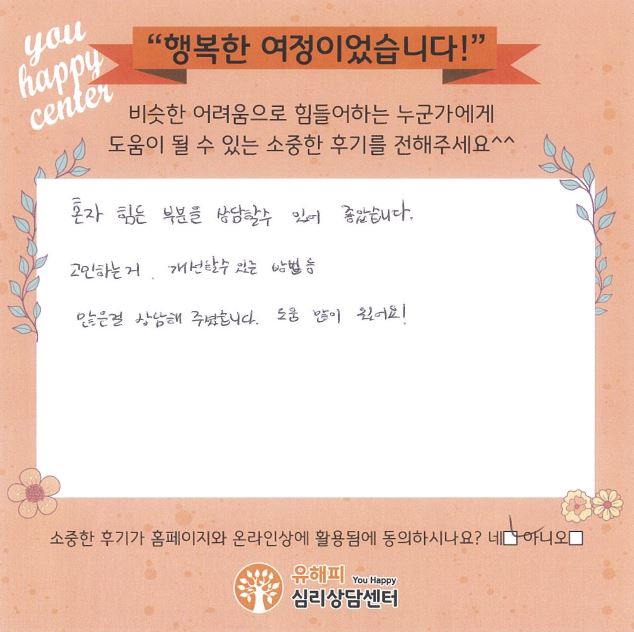 you
happy
center
“행복한 여정이었습니다!”
비슷한 어려움으로 힘들어하는 누군가에게
도움이 될 수 있는 소중한 후기를 전해주세요^^
혼자 힘든 부분을 상담할수 있어 좋았습니다.
고민하는거. 개선할수있는 방법등
많은걸 상담해 주셨습니다. 도움 많이 됬어요!
소중한 후기가 홈페이지와 온라인상에 활용됨에 동의하시나요? 네 아니오
유해피 You Happy
심리상담센터